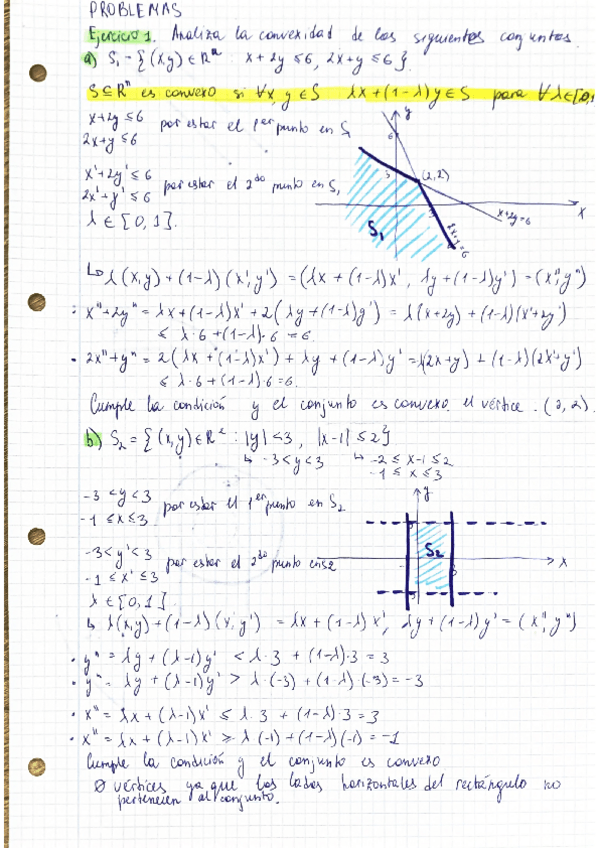 PROBLEMAS
Ejercicio 1. Analiza la convexidad de los siguientes conjuntos.
a) S₁ = { (x,y) ∈ Rⁿ : x + 2y ≤ 6, 2x + y ≤ 6 }.
S ⊆ Rⁿ es convexo si ∀x, y ∈ S λx + (1-λ) y ∈ S para ∀ λ ∈ [0,1
x + 2y ≤ 6
2x + y ≤ 6
por estar el 1er punto en S₁
x' + 2y' ≤ 6
2x' + y' ≤ 6
por estar el 2do punto en S₁
λ ∈ [0,1].
y
6
3
(2,2)
x
x+2y=6
2x+y=6
S₁
↳ λ(x,y) + (1-λ)(x',y') = (λx + (1-λ)x', λy + (1-λ)y') = (x'',y'')
· x''+2y'' = λx + (1-λ)x' + 2(λy + (1-λ)y') = λ(x+2y) + (1-λ)(x'+2y')
≤ λ·6 + (1-λ)·6 = 6.
· 2x''+y'' = 2(λx + (1-λ)x') + λy + (1-λ)y' = λ(2x+y) + (1-λ)(2x'+y')
≤ λ·6 + (1-λ)·6 = 6.
Cumple la condición y el conjunto es convexo. el vértice. (2,2).
b) S₂ = { (x,y) ∈ R² : |y| < 3, |x-1| ≤ 2 }
↳ -3 < y < 3 ↳ -2 ≤ x-1 ≤ 2
-1 ≤ x ≤ 3
-3 < y < 3
-1 ≤ x ≤ 3
por estar el 1er punto en S₂
-3 < y' < 3
-1 ≤ x' ≤ 3
por estar el 2do punto en S2
λ ∈ [0,1]
y
S₂
x
↳ λ(x,y) + (1-λ)(x',y') = λx + (1-λ)x', λy + (1-λ)y' = (x'',y'')
· y'' = λy + (λ-1)y' < λ·3 + (1-λ)·3 = 3
· y'' = λy + (λ-1)y' > λ·(-3) + (1-λ)·(-3) = -3
· x'' = λx + (λ-1)x' ≤ λ·3 + (1-λ)·3 = 3
· x'' = λx + (λ-1)x' ≥ λ·(-1) + (1-λ)(-1) = -1
Cumple la condición y el conjunto es convexo
∅ vértices ya que los lados horizontales del rectángulo no
pertenecen al conjunto.